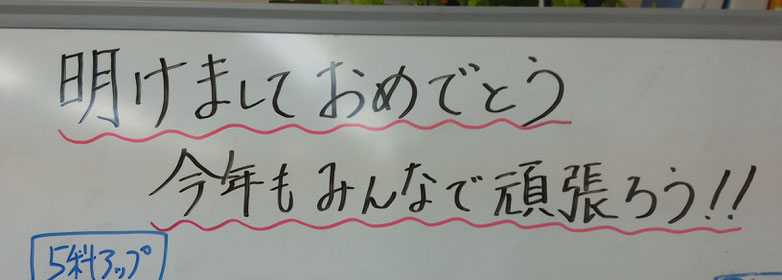 明けましておめでとう
今年もみんなで頑張ろう!!
5科アップ